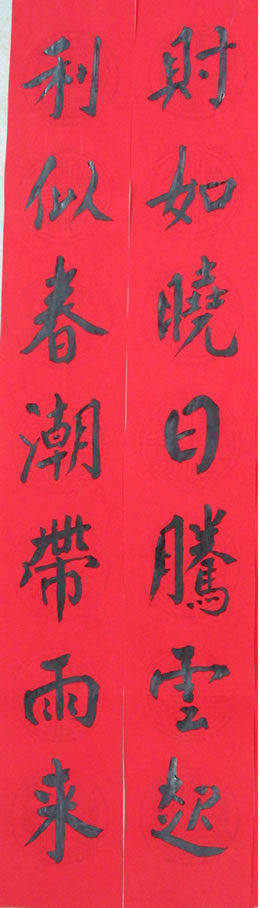 財如曉日騰雲起
利似春潮帶雨来